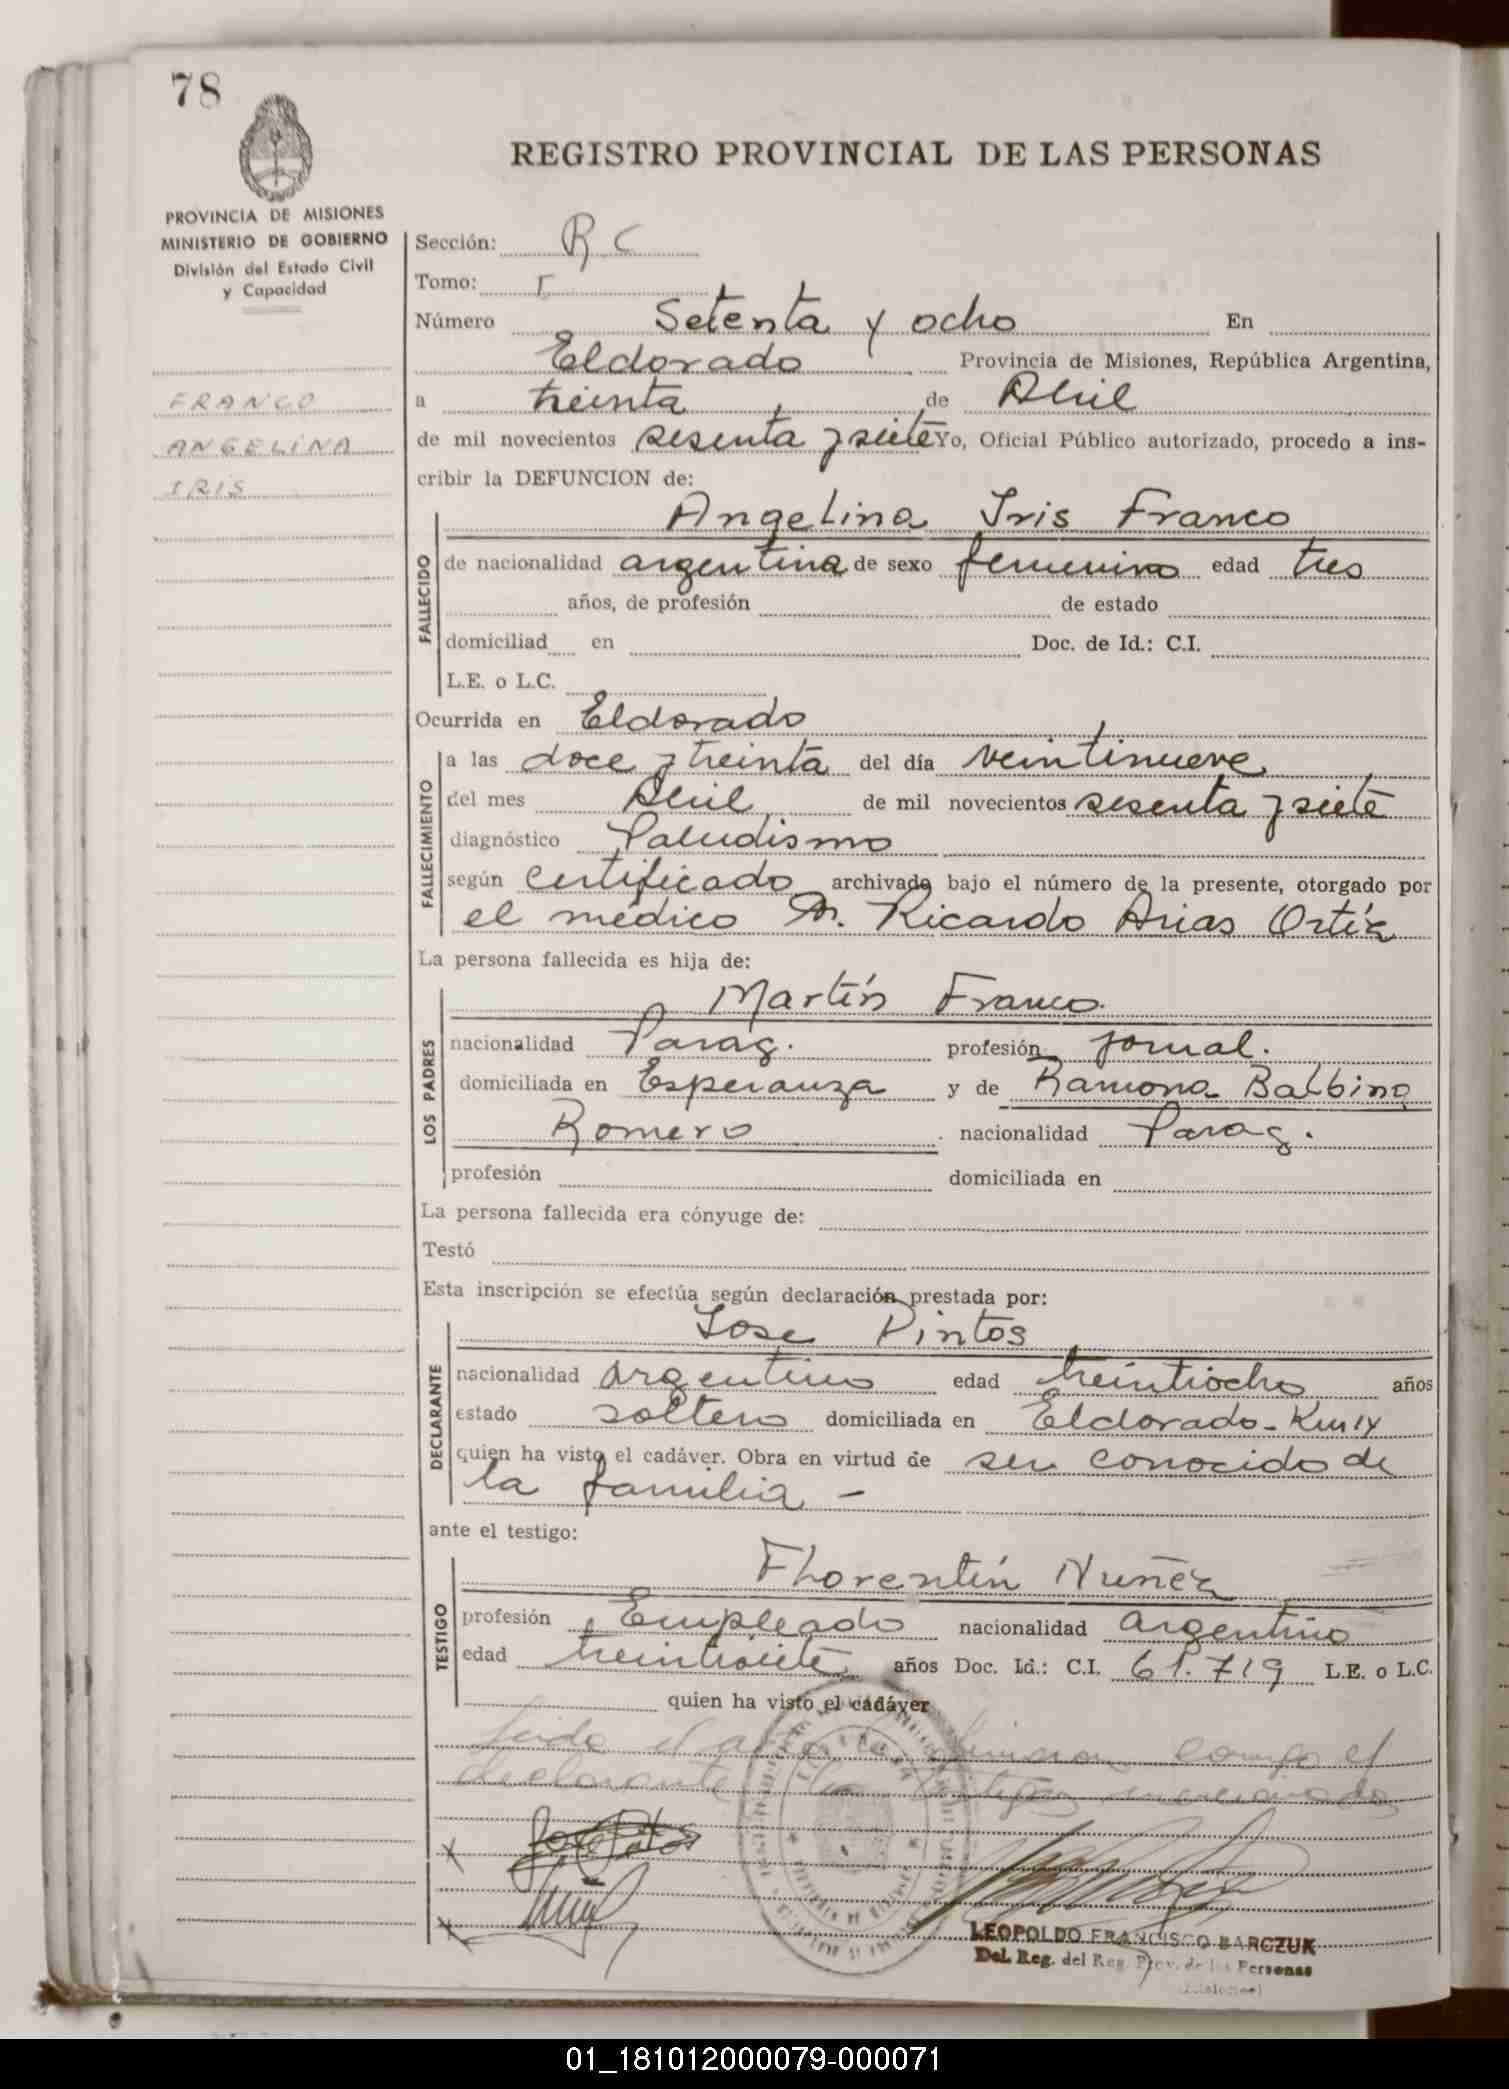 78
REGISTRO PROVINCIAL DE LAS PERSONAS
PROVINCIA DE MISIONES
MINISTERIO DE GOBIERNO
División del Estado Civil
y Capacidad
FRANCO
ANGELINA
IRIS
Sección: R C
Tomo: I
Número Setenta y ocho En
Eldorado Provincia de Misiones, República Argentina,
a treinta de Abril
de mil novecientos sesenta y siete Yo, Oficial Público autorizado, procedo a ins-
cribir la DEFUNCION de:
Angelina Iris Franco
FALLECIDO
de nacionalidad argentina de sexo femenino edad tres
años, de profesión de estado
domiciliad en Doc. de Id.: C.I.
L.E. o L.C.
Ocurrida en Eldorado
FALLECIMIENTO
a las doce y treinta del día veintinueve
del mes Abril de mil novecientos sesenta y siete
diagnóstico Paludismo
según certificado archivado bajo el número de la presente, otorgado por
el médico Dr. Ricardo Arias Ortíz
La persona fallecida es hija de:
LOS PADRES
Martín Franco
nacionalidad Parag. profesión jornal.
domiciliada en Esperanza y de Ramona Balbina
Romero nacionalidad Parag.
profesión domiciliada en
La persona fallecida era cónyuge de:
Testó
Esta inscripción se efectúa según declaración prestada por:
DECLARANTE
Jose Pintos
nacionalidad argentino edad treintiocho años
estado soltero domiciliada en Eldorado - Km
quien ha visto el cadáver. Obra en virtud de ser conocido de
la familia -
ante el testigo:
TESTIGO
Florentín Nuñez
profesión Empleado nacionalidad argentino
edad treintisiete años Doc. Id.: C.I. L.E. o L.C.
quien ha visto el cadáver
Leida el acta la firman conmigo el
declarante testigo mencionados
LEOPOLDO FRANCISCO BARCZUK
Del. Reg. del Reg. Prov. de las Personas
(Misiones)
01_181012000079-000071